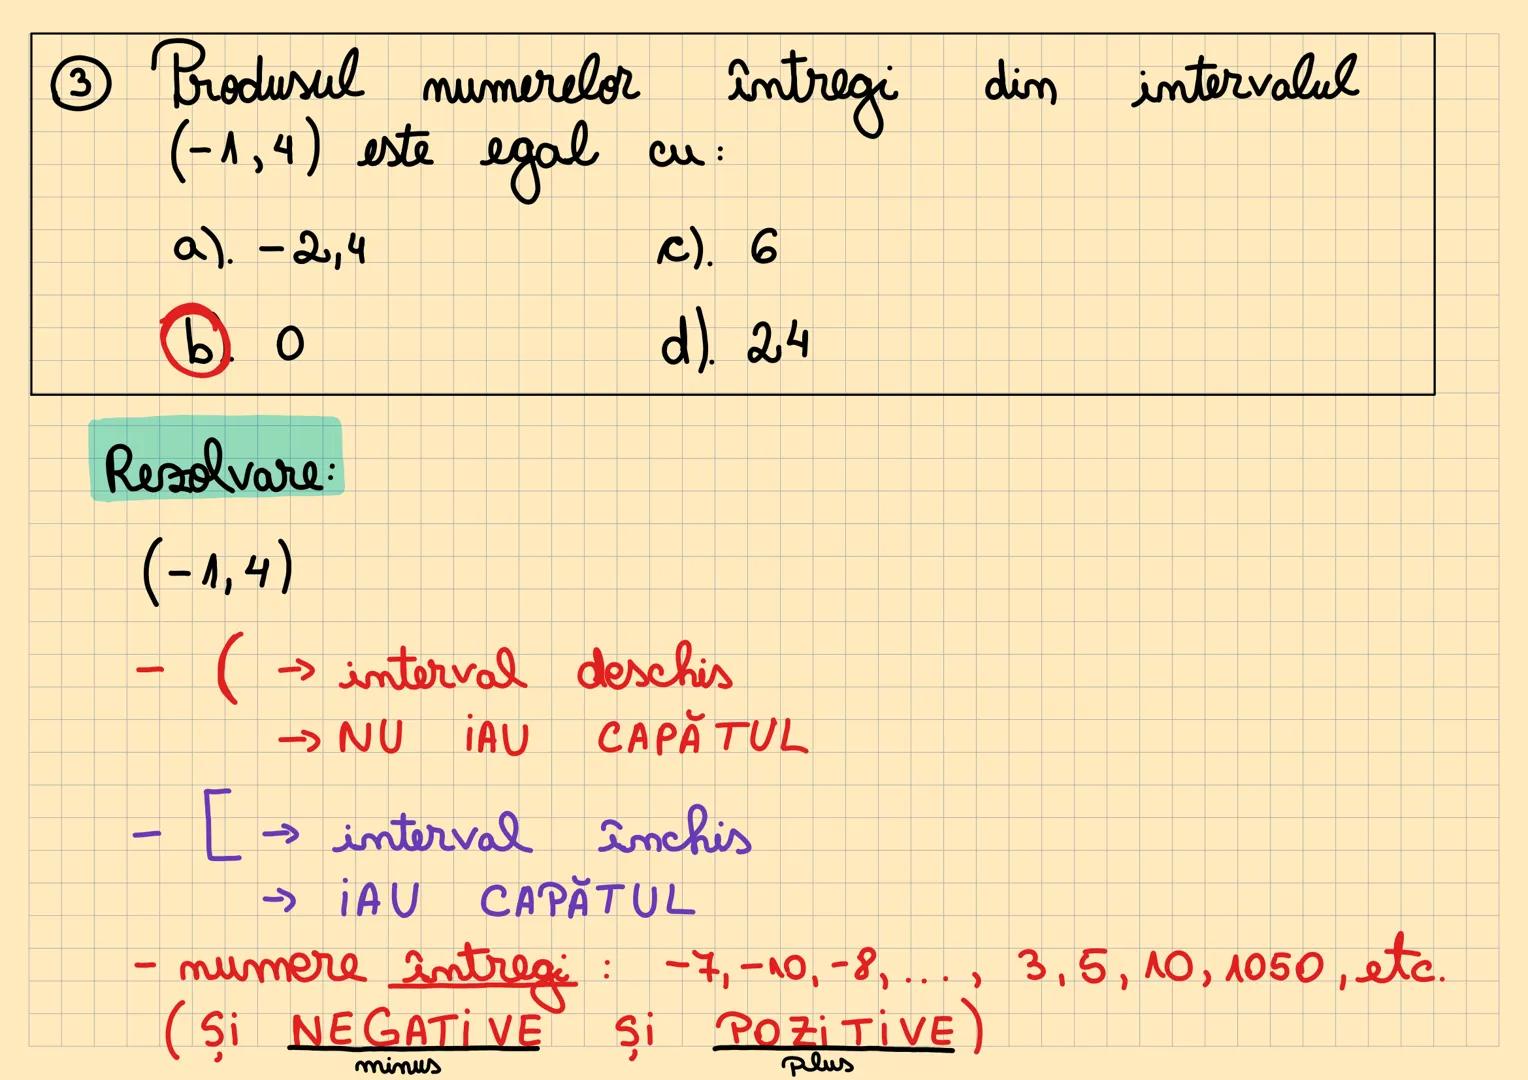 ③ Produsul numerelor întregi din intervalul
(-1,4) este egal cu:
a). -2,4 c). 6
b). 0 d). 24
Rezolvare:
(-1,4)
- ( → interval deschis
→ NU iAU CAPĂTUL
- [ → interval închis
→ iAU CAPĂTUL
- numere întregi : -7, -10, -8, ..., 3, 5, 10, 1050, etc.
(Și NEGATiVE Și POZiTiVE)
minus plus